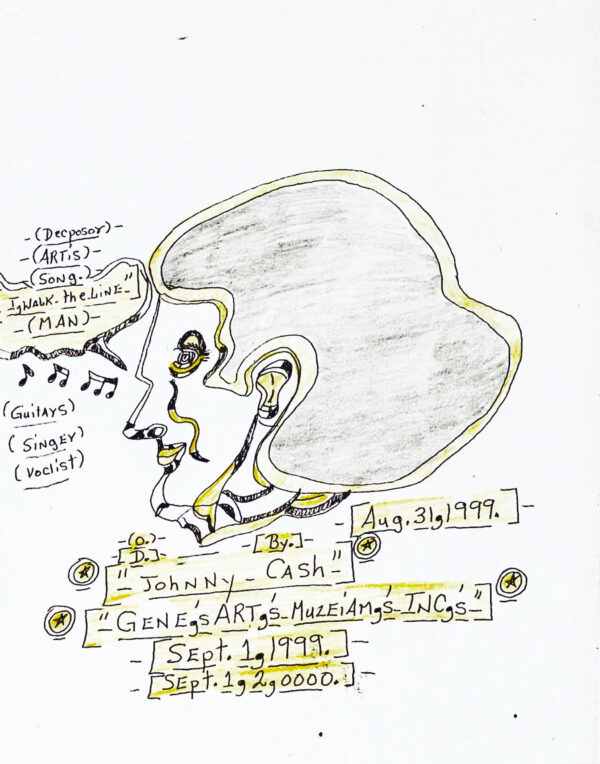 -(Decposor)-
-(ARTis)-
(Song.)
IgWALK-the LINE-"
-(MAN)-
(Guitars)
(Singer)
(Voclist)
-Aug. 31g1999.-
-(O.)-
-[D.]-
-[By.]-
"Johnny-CASH"
"-GENEg's ARTg's-MuzeiAmg's-INCg's-"
-Sept. 1g1999.-
-SEpt. 1g2g0000.-